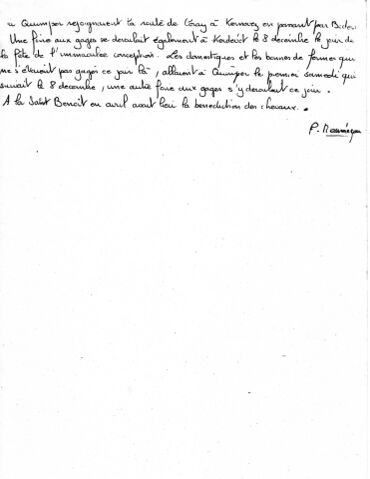 u Quimper rejoignaient la route de Coray à Kernarez en passant par Bidou
Une foire aux gages se deroulait également à Kerdevot le 8 decembre le jour de
la fête de l'immaculée conception. Les domestiques et les bonnes de fermes qui
ne s'étaient pas gagés ce jour là, allaient à Quimper le premier samedi qui
suivait le 8 decembre, une autre foire aux gages s'y deroulait ce jour.
A la Saint Benoit en avril avait lieu la benediction des chevaux.
P.